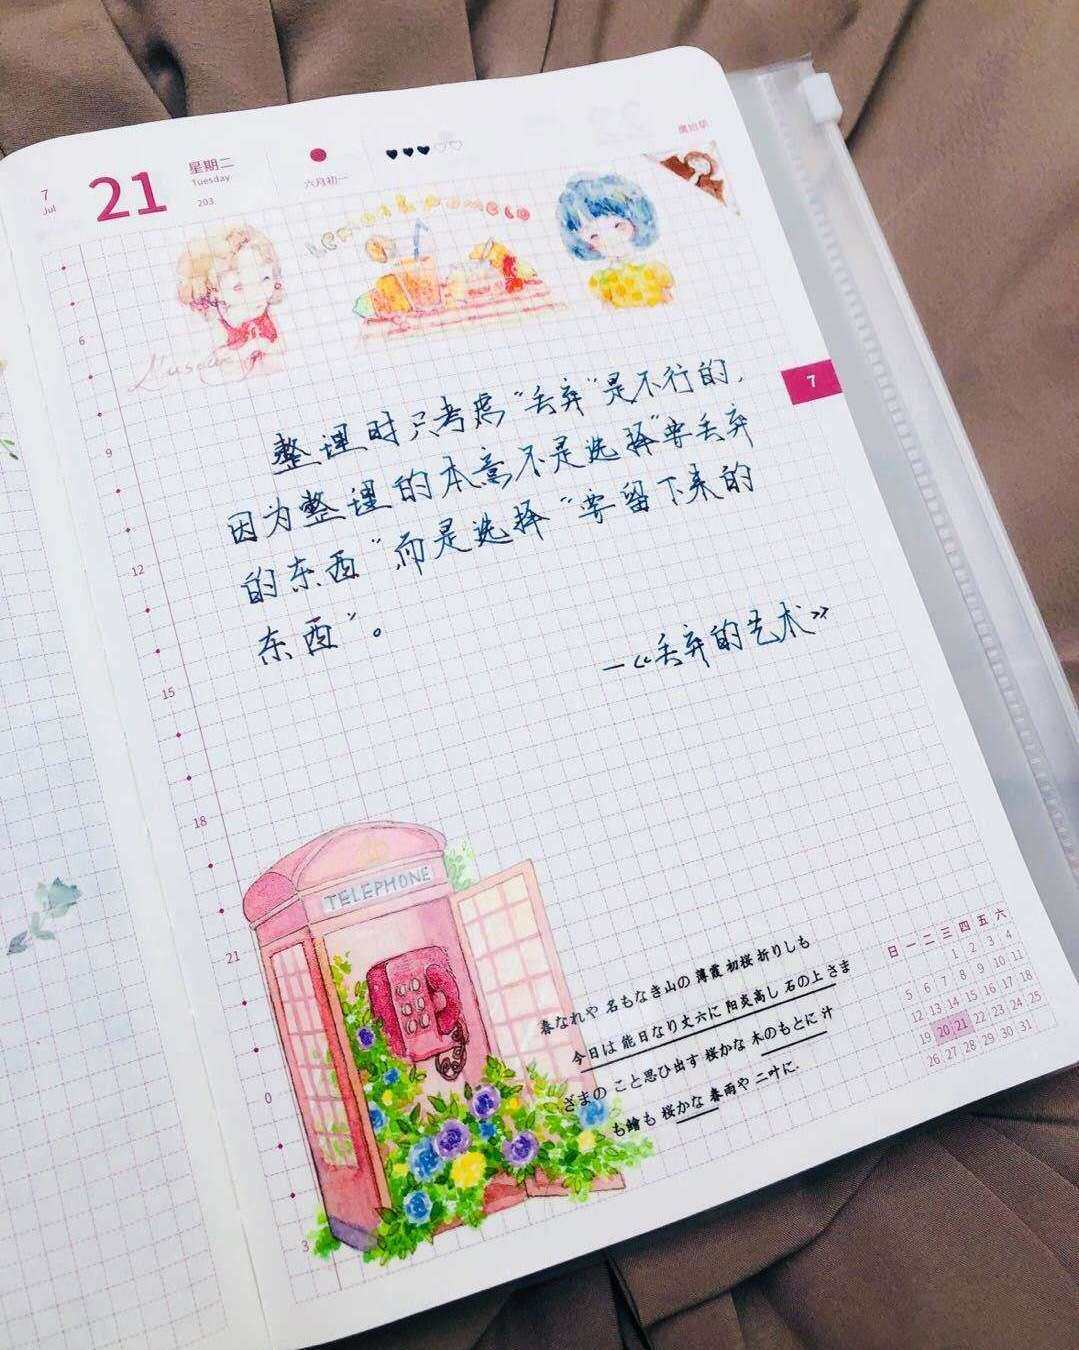 7
Jul
21
星期二
Tuesday
203
六月初一
7
整理时只考虑“丢弃”是不行的,
因为整理的本意不是选择“要丢弃
的东西”,而是选择“要留下来的
东西”。
—《丢弃的艺术》
6
9
12
15
18
21
0
3
TELEPHONE
春なれや 名もなき山の 薄霞 初桜 折りしも
今日は 能日なり 丈六に 阳炎高し 石の上 さま
ざまの こと思ひ出す 桜かな 木のもとに 汁
も鱠も 桜かな 春雨や 二叶に.
日 一 二 三 四 五 六
1 2 3 4
5 6 7 8 9 10 11
12 13 14 15 16 17 18
19 20 21 22 23 24 25
26 27 28 29 30 31